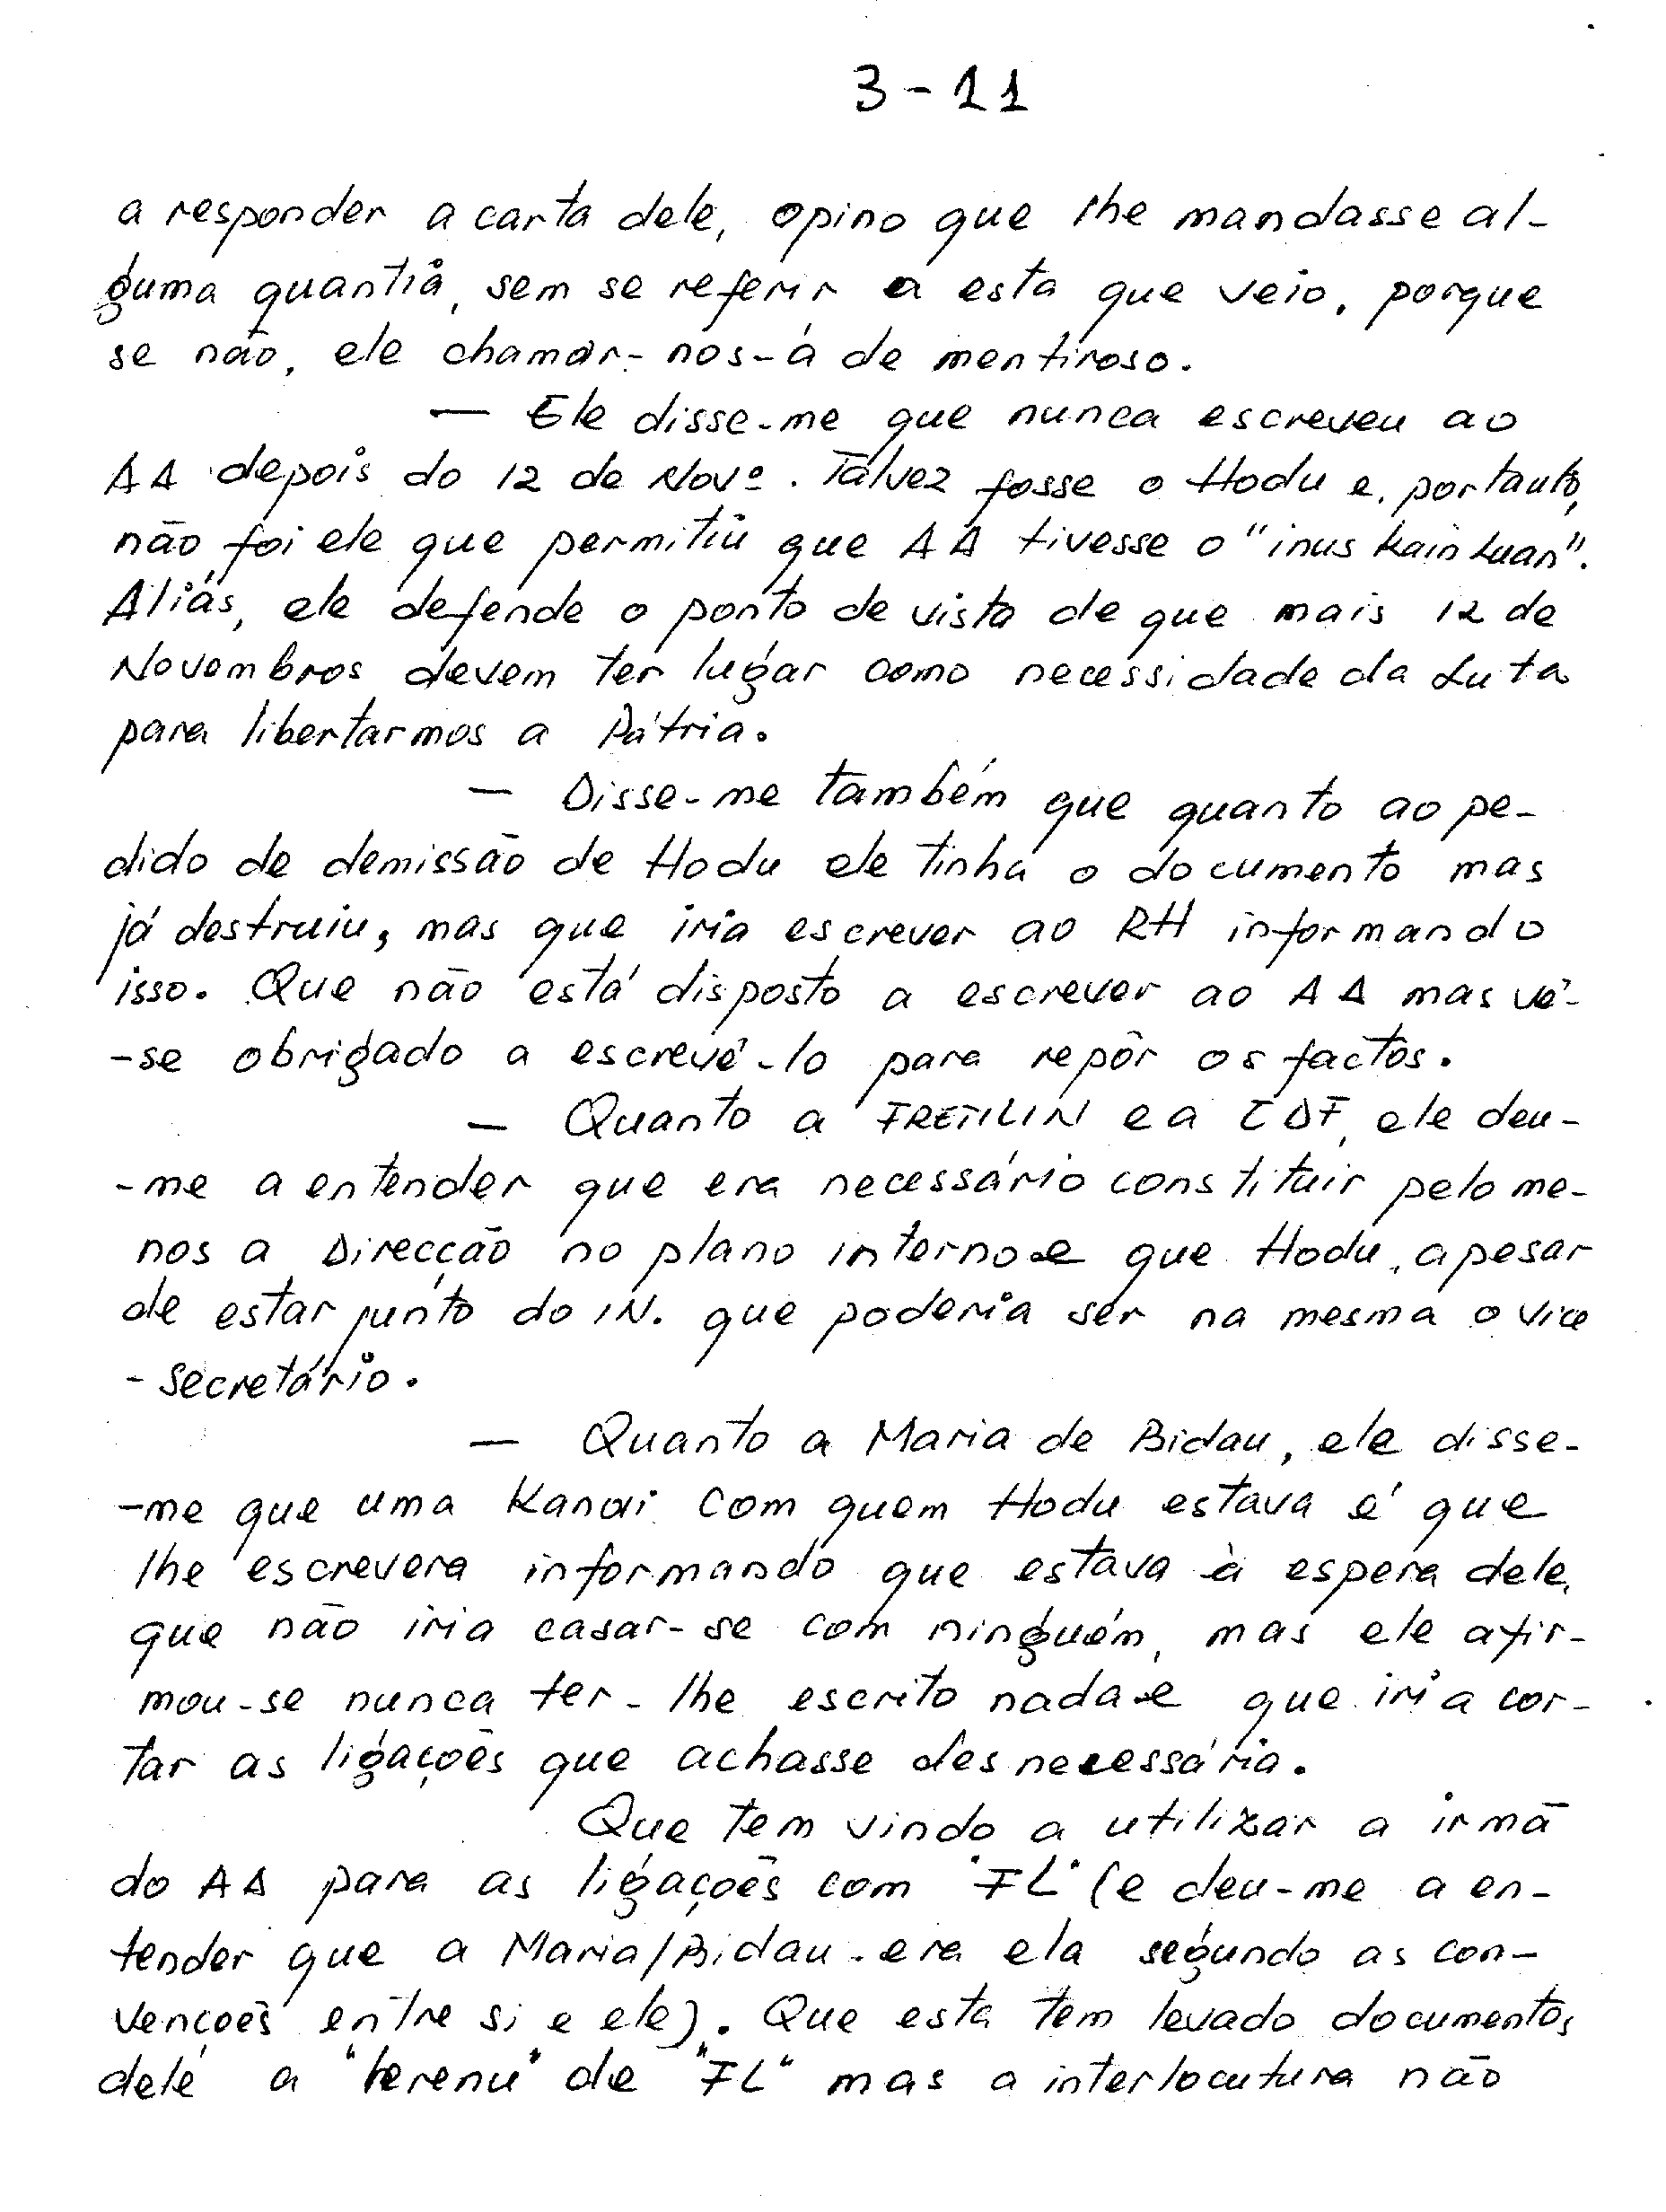 3-11
a responder a carta dele, opino que lhe mandasse al-
guma quantia, sem se referir a esta que veio, porque
se não, ele chamar-nos-á de mentiroso.
— Ele disse-me que nunca escreveu ao
AA depois do 12 de Novº. Talvez fosse o Hodu e, portanto,
não foi ele que permitiu que AA tivesse o "inus kain luan".
Aliás, ele defende o ponto de vista de que mais 12 de
Novembros devem ter lugar como necessidade da Luta
para libertarmos a Pátria.
— Disse-me também que quanto ao pe-
dido de demissão de Hodu ele tinha o documento mas
já destruiu, mas que iria escrever ao RH informando
isso. Que não está disposto a escrever ao AA mas vê-
-se obrigado a escrevê-lo para repôr os factos.
— Quanto a FRETILIN e a CDF, ele deu-
-me a entender que era necessário constituir pelo me-
nos a Direcção no plano interno e que Hodu, apesar
de estar junto do IN. que poderia ser na mesma o vice
-secretário.
— Quanto a Maria de Bidau, ele disse-
-me que uma Kanai com quem Hodu estava é que
lhe escrevera informando que estava à espera dele,
que não iria casar-se com ninguém, mas ele afir-
mou-se nunca ter-lhe escrito nada e que iria cor-
tar as ligações que achasse desnecessária.
Que tem vindo a utilizar a irmã
do AA para as ligações com "FL" (e deu-me a en-
tender que a Maria/Bidau era ela segundo as con-
venções entre si e ele). Que esta tem levado documentos
dele a "berenu" de "FL" mas a interlocutura não